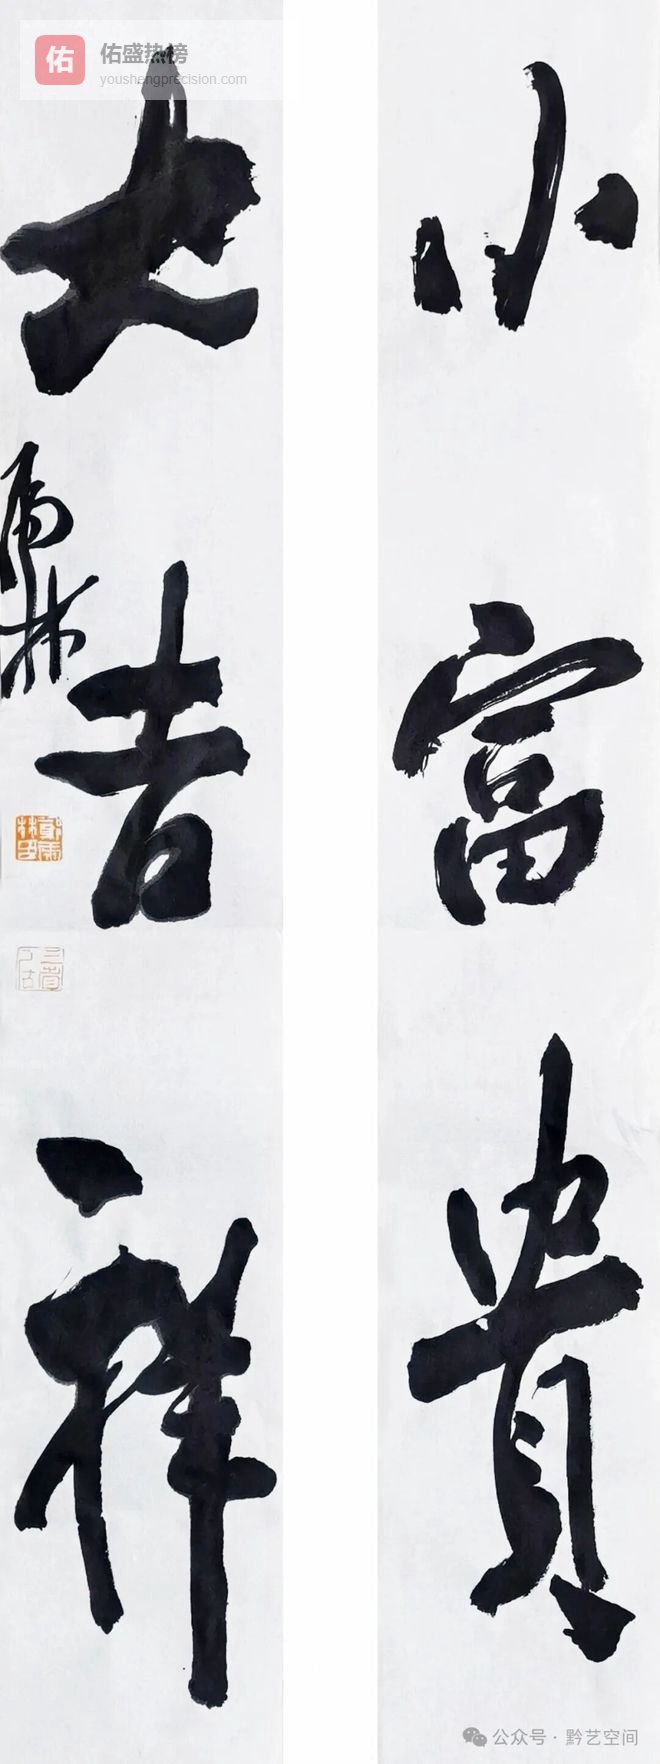 佑 佑盛热榜
youshangprecision.com
小富贵
大吉祥
雨林
公众号 · 黔艺空间